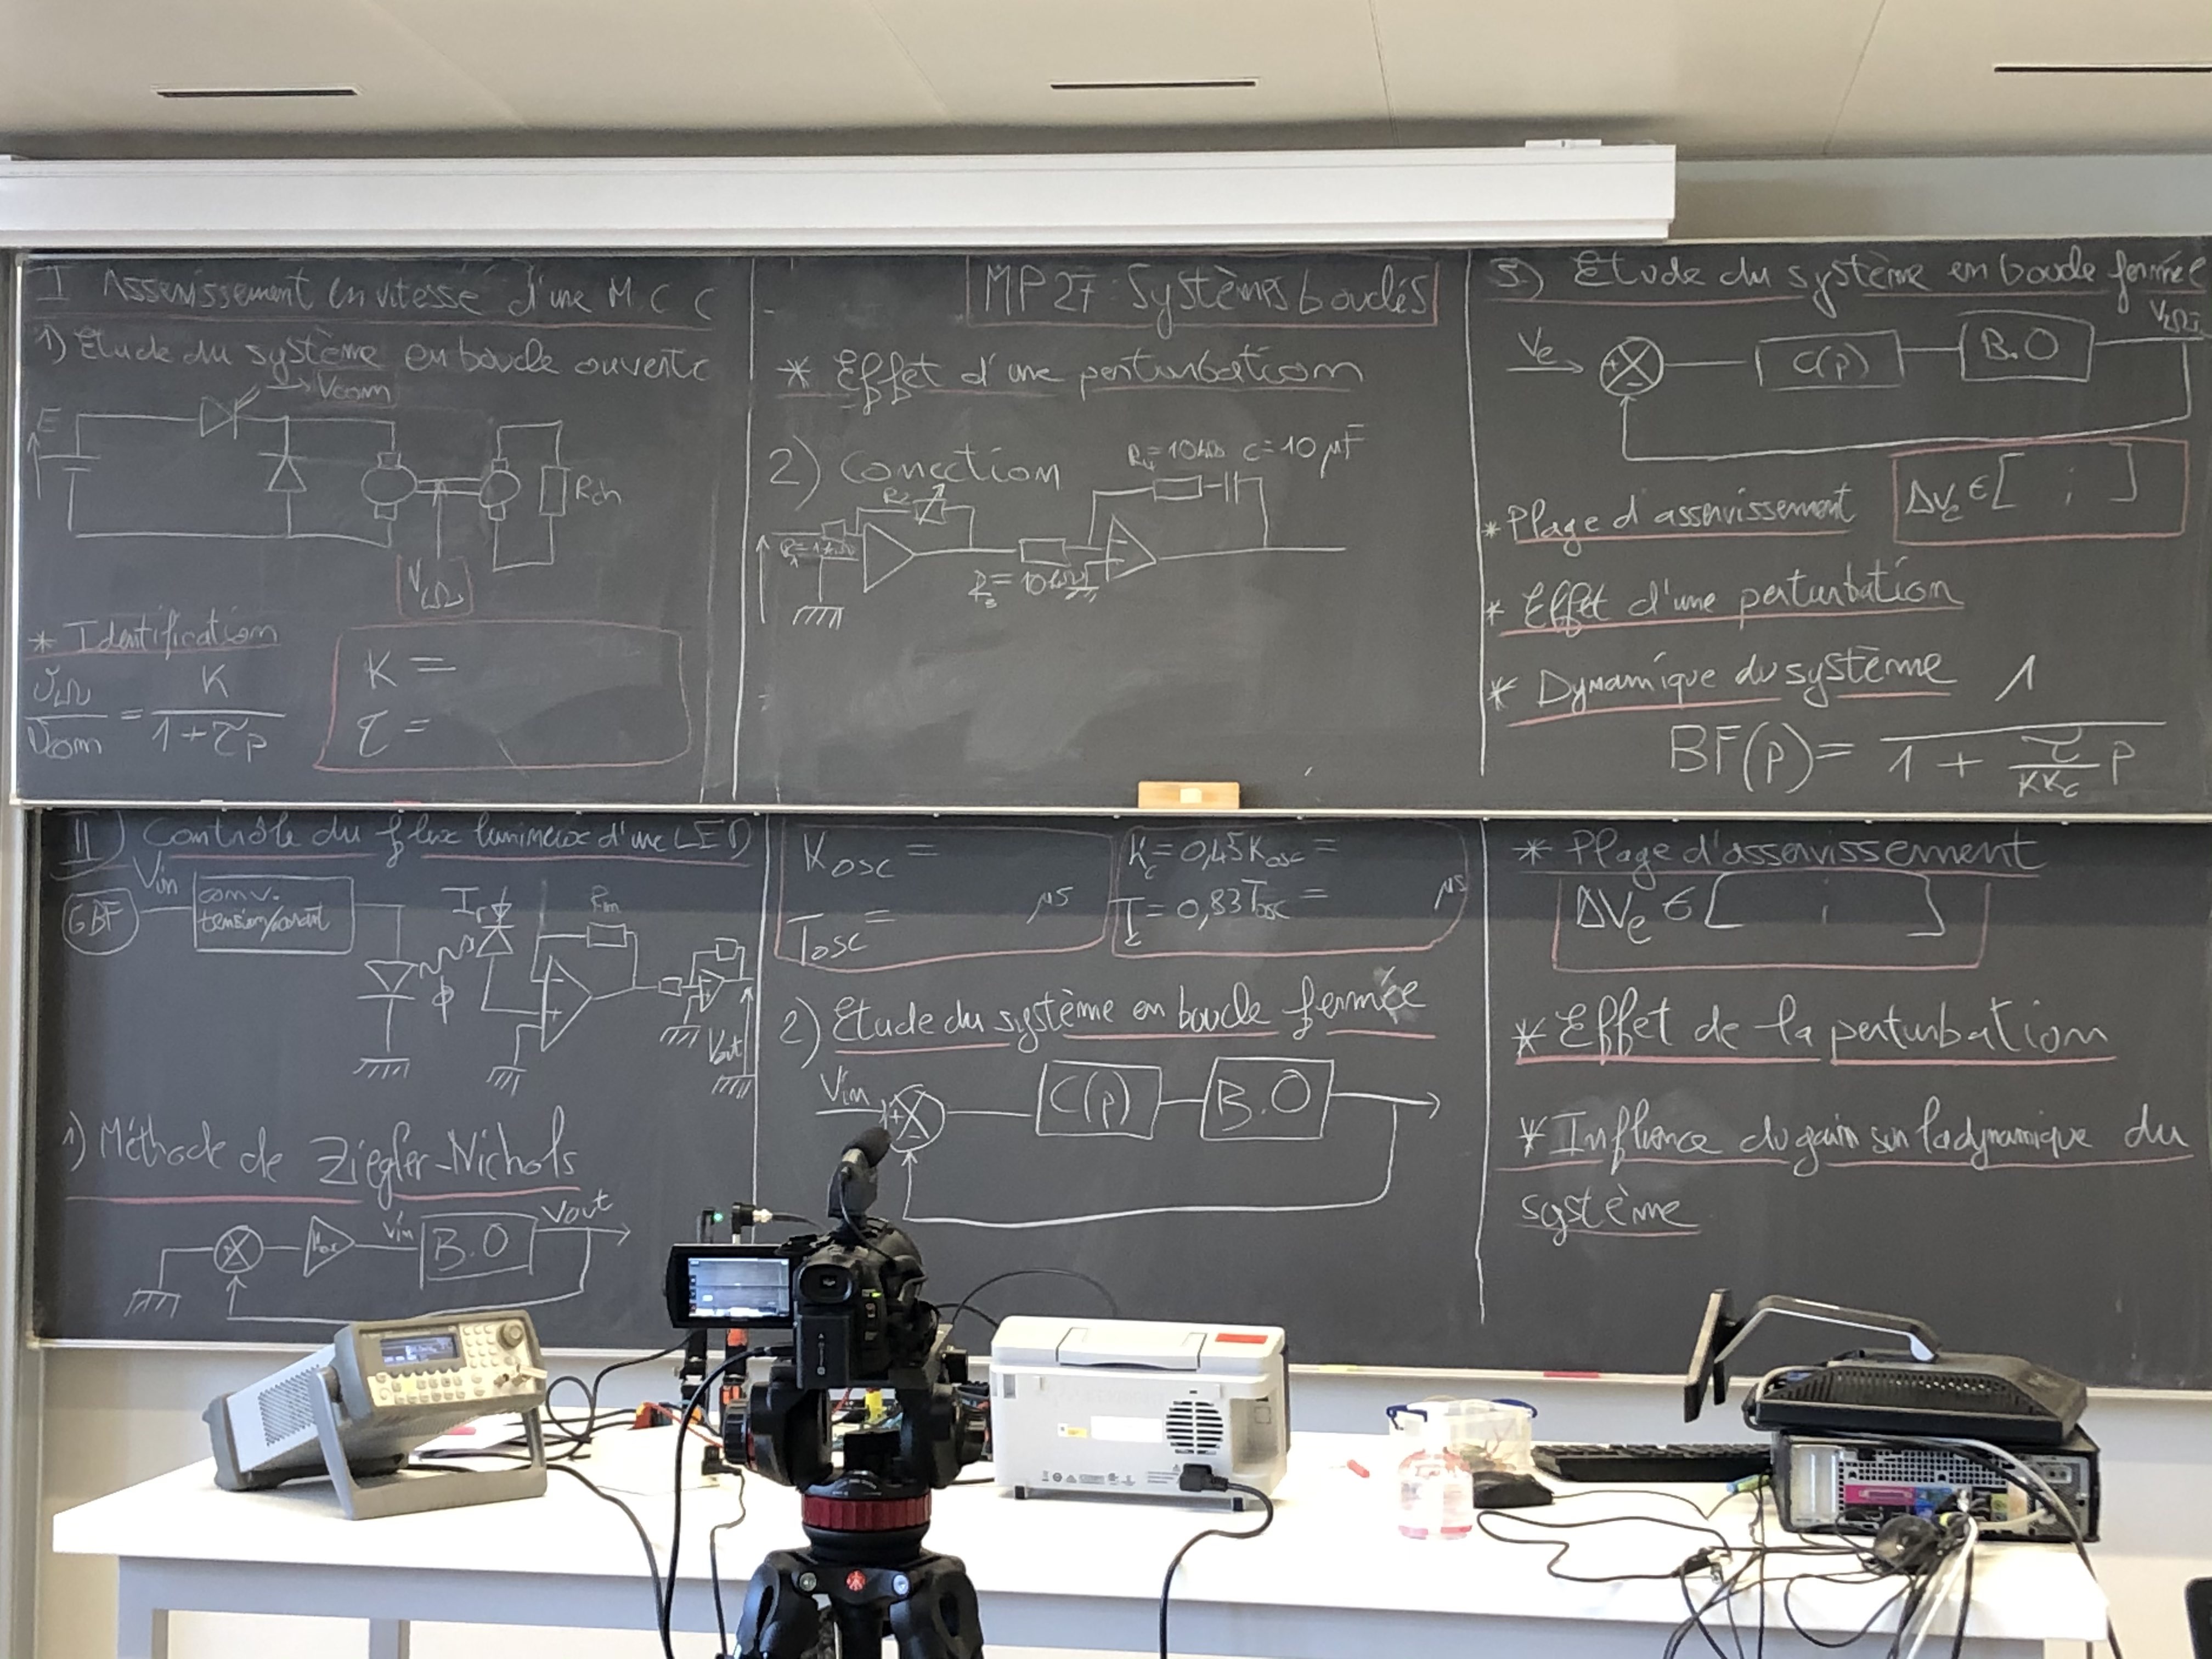 I Asservissement en vitesse d'une M.C.C
1) Etude du système en boucle ouverte
Vcom
E
Rch
VΩ
* Identification
vΩ/vcom = K/(1+τp)
K =
τ =
MP27: Systèmes bouclés
* Effet d'une perturbation
2) Correction
R4=10kΩ C=10 μF
R2
R3=10kΩ
3) Etude du système en boucle fermée
Ve
+
-
C(p)
B.O
VΩ
* Plage d'asservissement
ΔVe ∈ [ ; ]
* Effet d'une perturbation
* Dynamique du système
BF(p) = 1/(1 + τ/(KKc) p)
II) Contrôle du flux lumineux d'une LED
GBF
Vin
conv.
tension/courant
Φ
Ir
Rm
Vout
1) Méthode de Ziegler-Nichols
Kosc
Vin
B.O
Vout
Kosc =
Tosc = μs
Kc = 0,45Kosc =
Tc = 0,83Tosc = μs
2) Etude du système en boucle fermée
Vin
+
-
C(p)
B.O
* Plage d'asservissement
ΔVe ∈ [ ; ]
* Effet de la perturbation
* Influence du gain sur la dynamique du
système